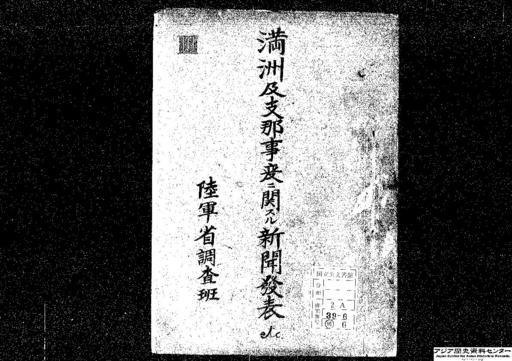 満洲及支那事変ニ関スル新聞發表 etc.
陸軍省調査班
国立公文書館
分類
2A
39-6
6
アジア歴史資料センター
Japan Center for Asian Historical Records